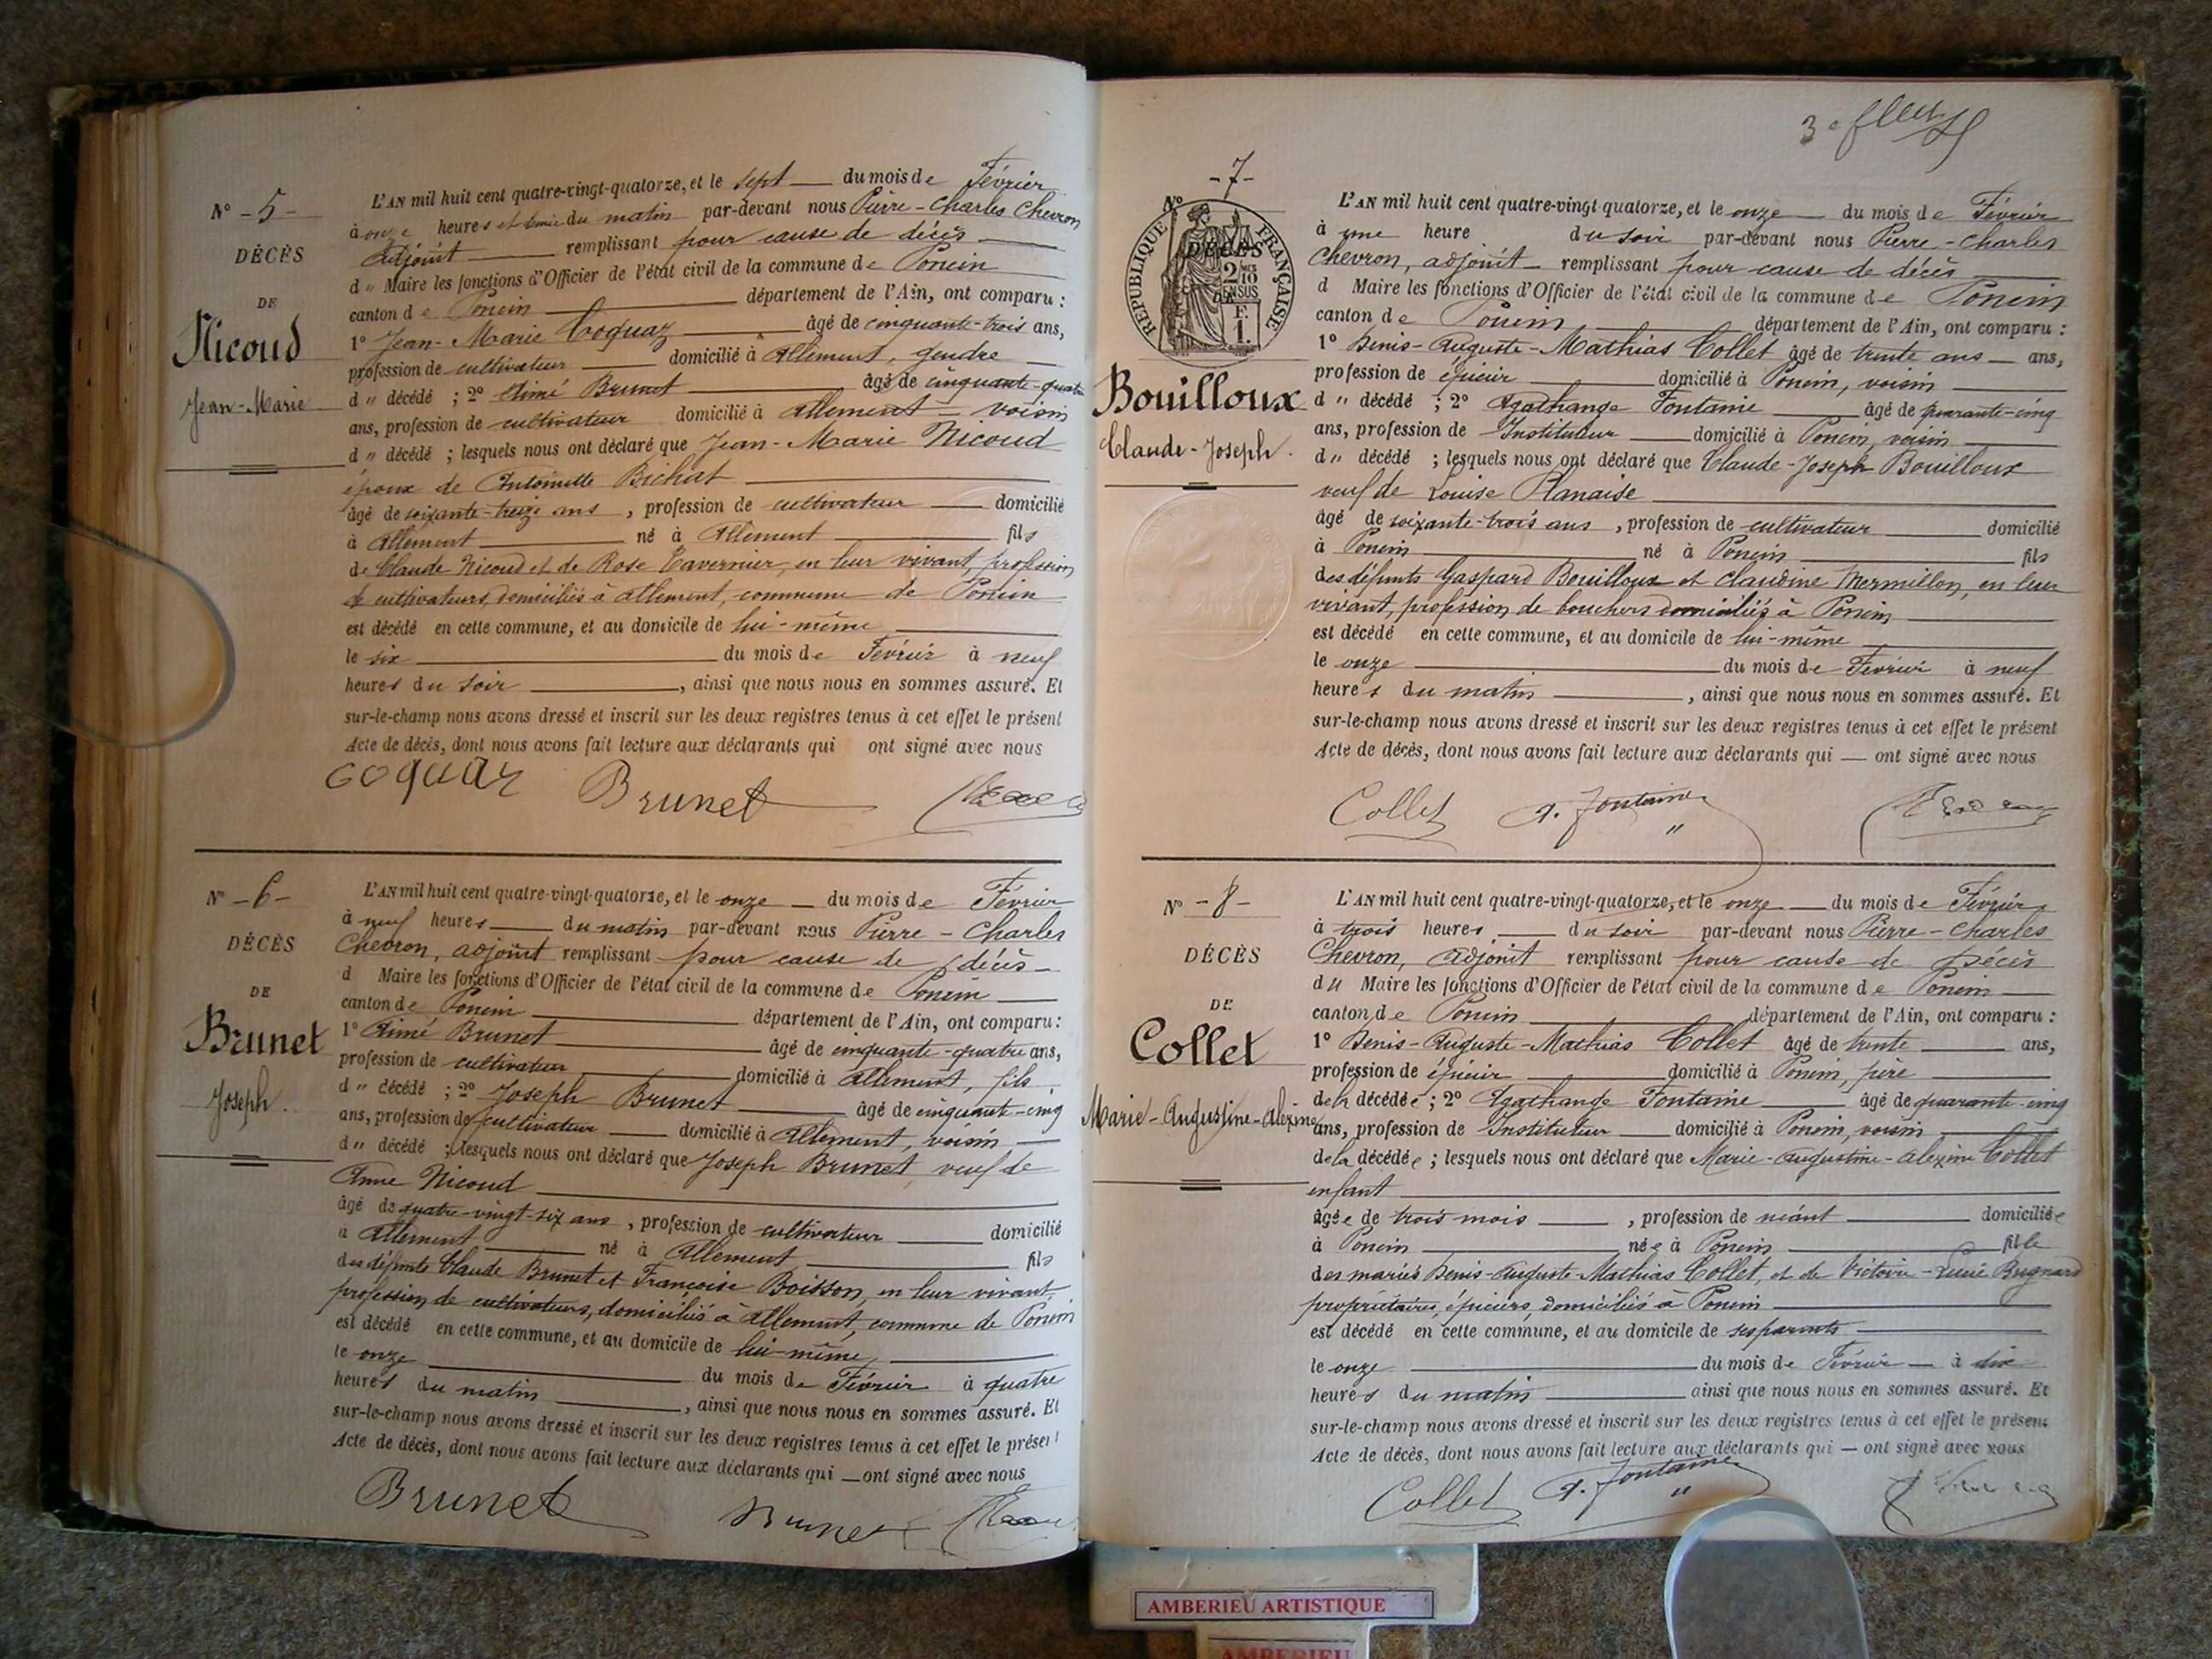 N° - 5 -
DÉCÈS
DE
Nicoud
Jean-Marie
L'AN mil huit cent quatre-vingt-quatorze, et le sept du mois de Février
à onze heures et demie du matin par-devant nous Pierre-Charles Chevron
adjoint remplissant pour cause de décès
d " Maire les fonctions d'Officier de l'état civil de la commune de Poncin
canton de Poncin département de l'Ain, ont comparu :
1° Jean-Marie Coquaz âgé de cinquante-trois ans,
profession de cultivateur domicilié à Allement, gendre
d " décédé ; 2° Aimé Brunet âgé de cinquante-quatre
ans, profession de cultivateur domicilié à Allement - voisin
d " décédé ; lesquels nous ont déclaré que Jean-Marie Nicoud
époux de Antoinette Bichat
âgé de soixante-treize ans, profession de cultivateur domicilié
à Allement né à Allement fils
de Claude Nicoud et de Rose Tavernier, en leur vivant, profession
de cultivateurs, domiciliés à Allement, commune de Poncin
est décédé en cette commune, et au domicile de lui-même
le six du mois de Février à neuf
heures du soir , ainsi que nous nous en sommes assuré. Et
sur-le-champ nous avons dressé et inscrit sur les deux registres tenus à cet effet le présent
Acte de décès, dont nous avons fait lecture aux déclarants qui ont signé avec nous
Coquaz Brunet
N° - 6 -
DÉCÈS
DE
Brunet
Joseph
L'AN mil huit cent quatre-vingt-quatorze, et le onze du mois de Février
à neuf heures du matin par-devant nous Pierre-Charles
Chevron, adjoint remplissant pour cause de décès
d Maire les fonctions d'Officier de l'état civil de la commune de Poncin
canton de Poncin département de l'Ain, ont comparu :
1° Aimé Brunet âgé de cinquante-quatre ans,
profession de cultivateur domicilié à Allement, fils
d " décédé ; 2° Joseph Brunet âgé de cinquante-cinq
ans, profession de cultivateur domicilié à Allement, voisin
d " décédé ; lesquels nous ont déclaré que Joseph Brunet, veuf de
Anne Nicoud
âgé de quatre-vingt-six ans, profession de cultivateur domicilié
à Allement né à Allement fils
des défunts Claude Brunet et Françoise Boisson, en leur vivant,
profession de cultivateurs, domiciliés à Allement, commune de Poncin
est décédé en cette commune, et au domicile de lui-même,
le onze du mois de Février à quatre
heures du matin , ainsi que nous nous en sommes assuré. Et
sur-le-champ nous avons dressé et inscrit sur les deux registres tenus à cet effet le présent
Acte de décès, dont nous avons fait lecture aux déclarants qui ont signé avec nous
Brunet Brunet
3e
N° - 7 -
RÉPUBLIQUE FRANÇAISE
DÉCÈS
2 10 MES
EN SUS
F.
1.
Bouilloux
Claude-Joseph.
L'AN mil huit cent quatre-vingt quatorze, et le onze du mois de Février
à une heure du soir par-devant nous Pierre-Charles
Chevron, adjoint remplissant pour cause de décès
d Maire les fonctions d'Officier de l'état civil de la commune de Poncin
canton de Poncin département de l'Ain, ont comparu :
1° Denis-Auguste-Mathias Collet âgé de trente ans ans,
profession de épicier domicilié à Poncin, voisin
d " décédé ; 2° Agathange Fontaine âgé de quarante-cinq
ans, profession de Instituteur domicilié à Poncin, voisin
d " décédé ; lesquels nous ont déclaré que Claude-Joseph Bouilloux
veuf de Louise Planaise
âgé de soixante-trois ans, profession de cultivateur domicilié
à Poncin né à Poncin fils
des défunts Gaspard Bouilloux et Claudine Mermillon, en leur
vivant, profession de bouchers domiciliés à Poncin
est décédé en cette commune, et au domicile de lui-même
le onze du mois de Février à neuf
heures du matin , ainsi que nous nous en sommes assuré. Et
sur-le-champ nous avons dressé et inscrit sur les deux registres tenus à cet effet le présent
Acte de décès, dont nous avons fait lecture aux déclarants qui ont signé avec nous
Collet A. Fontaine
N° - 8 -
DÉCÈS
DE
Collet
Marie-Augustine-Alexine
L'AN mil huit cent quatre-vingt-quatorze, et le onze du mois de Février
à trois heures du soir par-devant nous Pierre-Charles
Chevron, adjoint remplissant pour cause de décès
du Maire les fonctions d'Officier de l'état civil de la commune de Poncin
canton de Poncin département de l'Ain, ont comparu :
1° Denis-Auguste-Mathias Collet âgé de trente ans,
profession de épicier domicilié à Poncin, père
de la décédée ; 2° Agathange Fontaine âgé de quarante-cinq
ans, profession de Instituteur domicilié à Poncin, voisin
de la décédée ; lesquels nous ont déclaré que Marie-Augustine-Alexine Collet
enfant
âgée de trois mois , profession de néant domiciliée
à Poncin née à Poncin fille
des mariés Denis-Auguste-Mathias Collet, et de Victoire-Lucie Bugnard
propriétaires, épiciers, domiciliés à Poncin
est décédé en cette commune, et au domicile de ses parents
le onze du mois de Février à dix
heures du matin ainsi que nous nous en sommes assuré. Et
sur-le-champ nous avons dressé et inscrit sur les deux registres tenus à cet effet le présent
Acte de décès, dont nous avons fait lecture aux déclarants qui ont signé avec nous
Collet A. Fontaine
AMBERIEU ARTISTIQUE
AMBERIEU